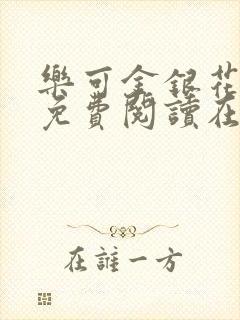 樂可金銀花
免費閱讀在
在誰一方